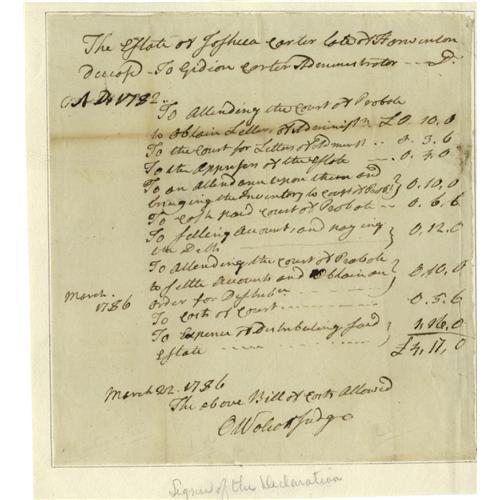 The Estate of Joshua Carter late of Harwinton
Deceasd - To Gidion Carter Administrator - - Dr.
AD. 1782. To Attending the Court of Probate
to Obtain Letters of Administn £0. 10, 0
To the Court for Letters of Admn - - 0. 3. 6
To the Apprisers of the Estate - - 0. 4. 0
To an Attendance upon them and
bringing the Inventory to Court of Prob } 0. 10. 0
To Cash paid Court of Probate - - 0. 6. 6
To Setling Accounts and paying
the Debts } 0. 12. 0
To Attending the Court of Probate
to Settle Accounts and Obtain an
March 1786 Order for Distribn } 0. 10. 0
To Costs of Court - - - - 0. 5. 6
To Expence of Distributing said
Estate - - - - } 1, 16, 0
£4, 17, 0
March 22. 1786
The above Bill of Costs Allowed
O Wolcott Judge
Signer of the Declaration